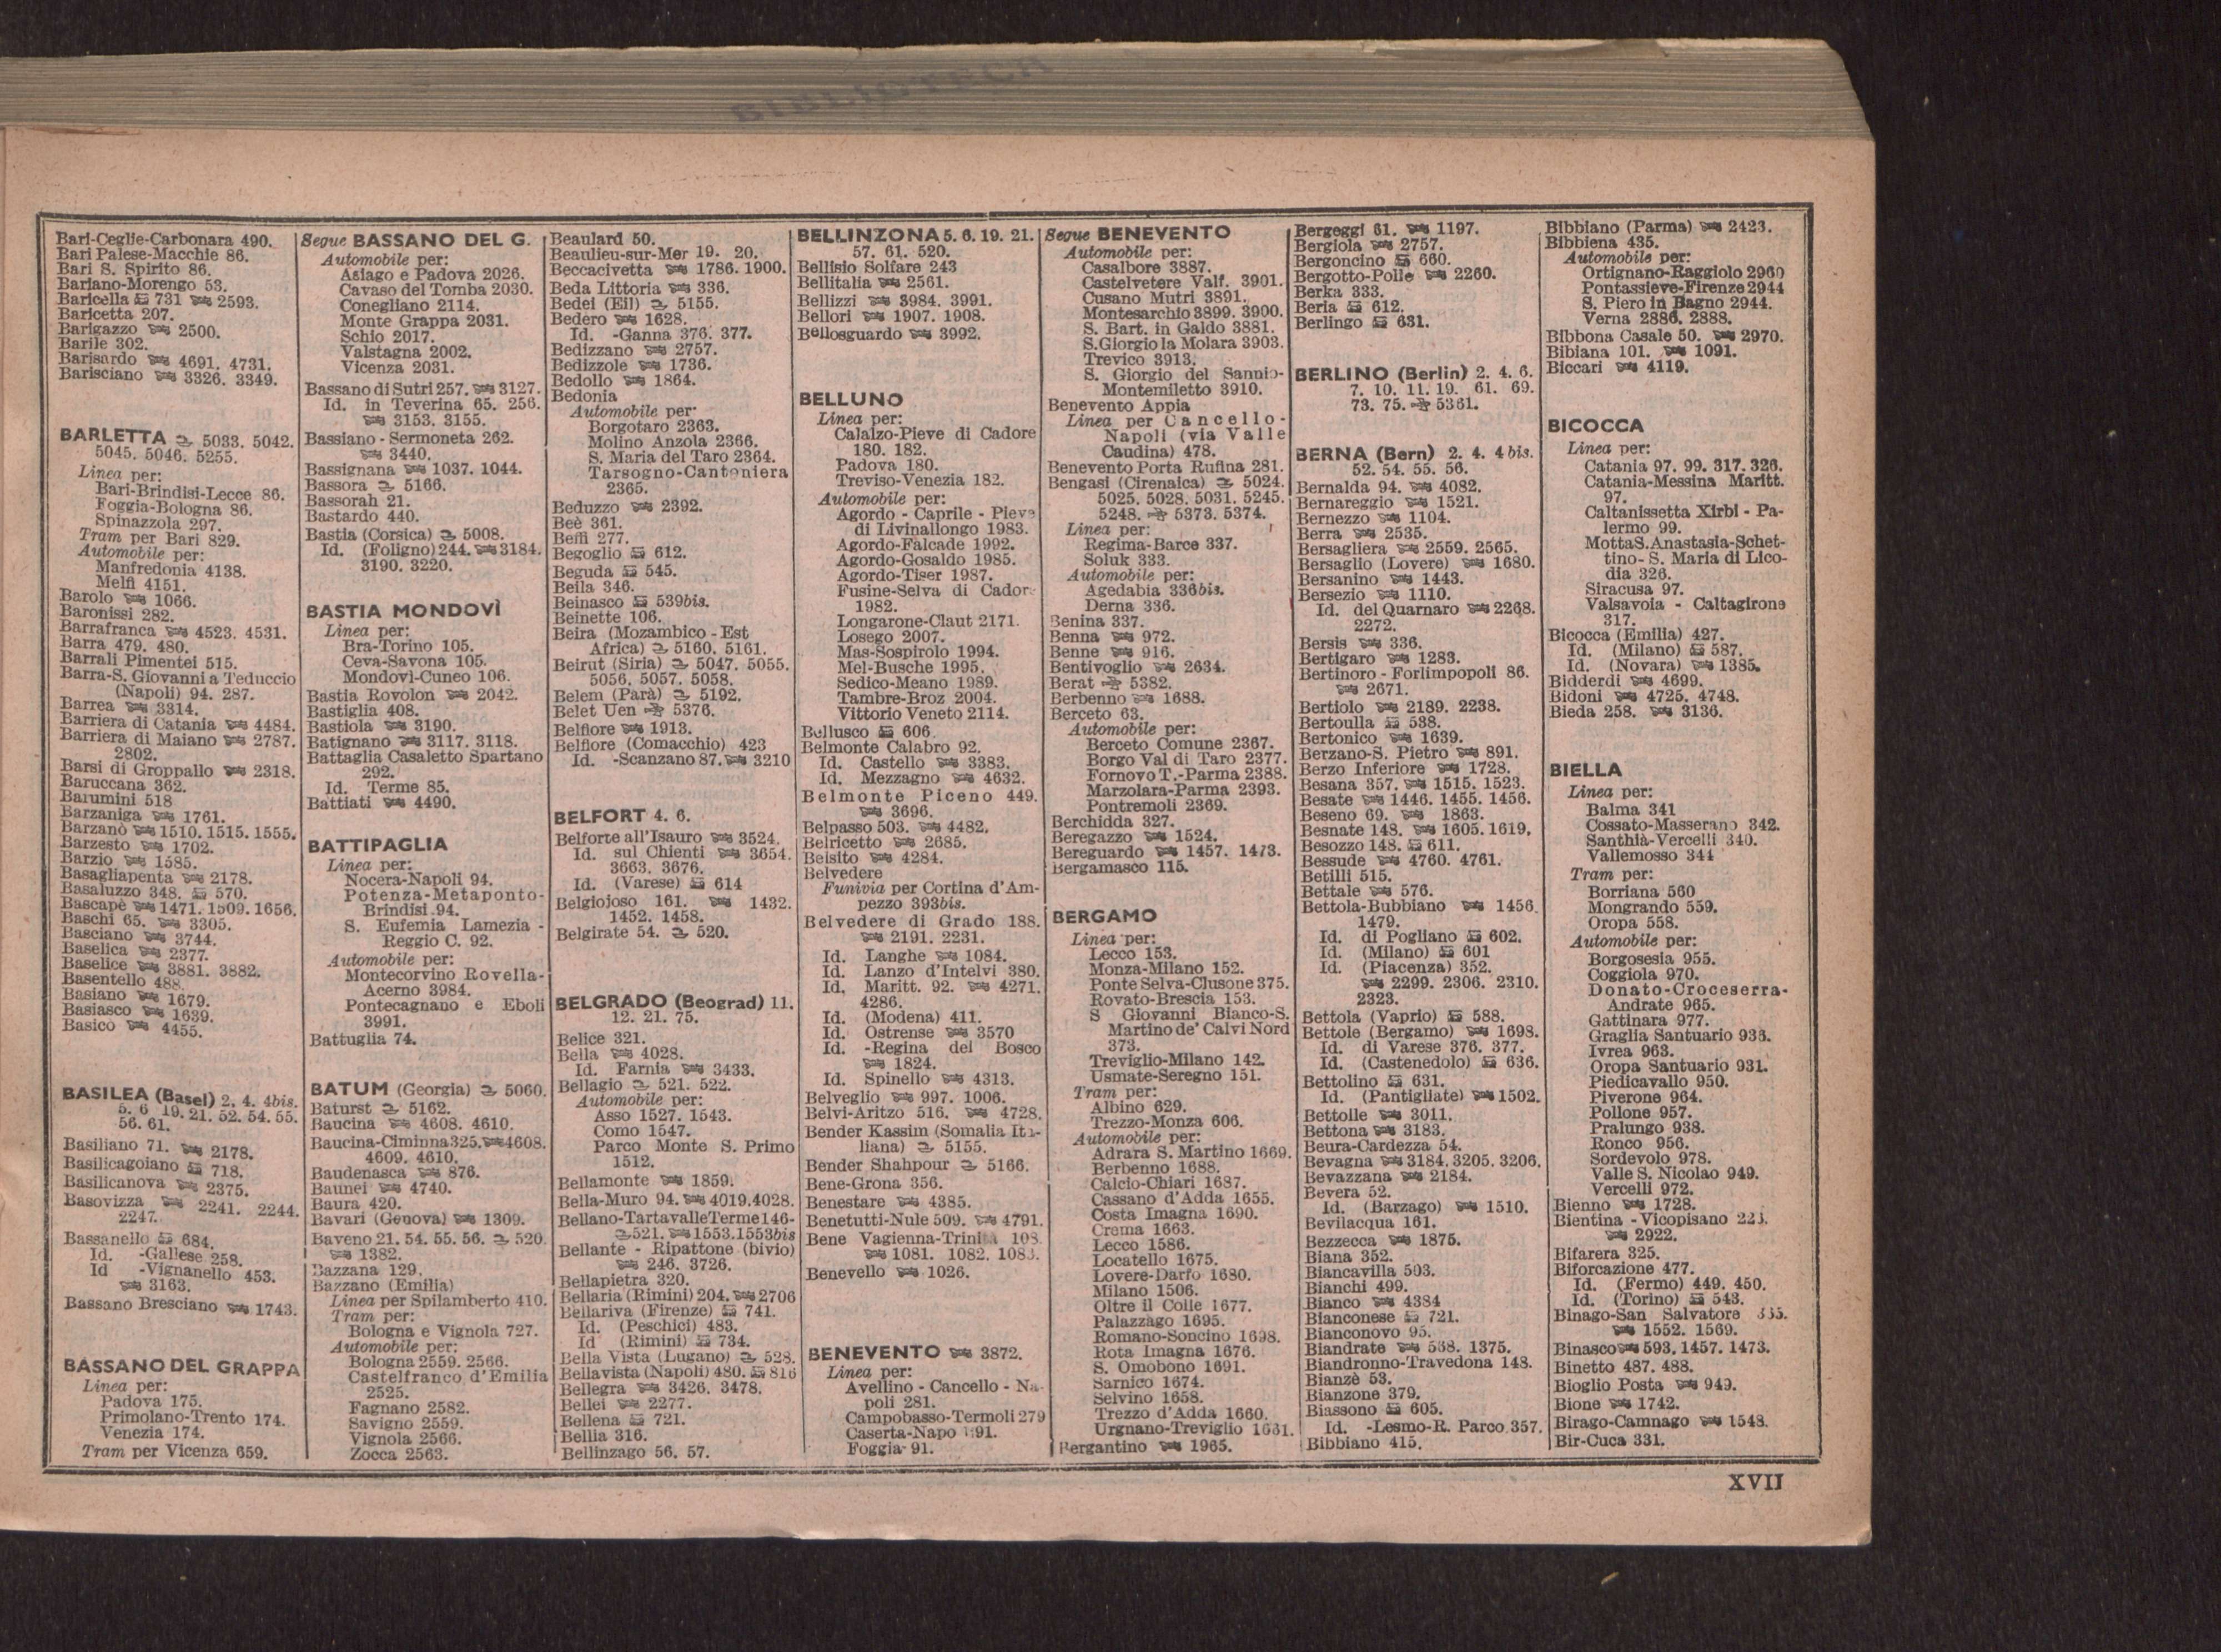 BIBLIOTECA
Bari-Ceglie-Carbonara 490.
Bari Palese-Macchie 86.
Bari S. Spirito 86.
Bariano-Morengo 53.
Baricella 731 2593.
Baricetta 207.
Barigazzo 2500.
Barile 302.
Barisardo 4691. 4731.
Barisciano 3326. 3349.
BARLETTA 5033. 5042.
5045. 5046. 5255.
Linea per:
Bari-Brindisi-Lecce 86.
Foggia-Bologna 86.
Spinazzola 297.
Tram per Bari 829.
Automobile per:
Manfredonia 4138.
Melfi 4151.
Barolo 1066.
Baronissi 282.
Barrafranca 4523. 4531.
Barra 479. 480.
Barrali Pimentei 515.
Barra-S. Giovanni a Teduccio
(Napoli) 94. 287.
Barrea 3314.
Barriera di Catania 4484.
Barriera di Maiano 2787.
2802.
Barsi di Groppallo 2318.
Baruccana 362.
Barumini 518
Barzaniga 1761.
Barzanò 1510. 1515. 1555.
Barzesto 1702.
Barzio 1585.
Basagliapenta 2178.
Basaluzzo 348. 570.
Bascapè 1471. 1509. 1656.
Baschi 65. 3305.
Basciano 3744.
Baselica 2377.
Baselice 3881. 3882.
Basentello 488.
Basiano 1679.
Basiasco 1639.
Basico 4455.
BASILEA (Basel) 2. 4. 4bis.
5. 6 19. 21. 52. 54. 55.
56. 61.
Basiliano 71. 2178.
Basilicagoiano 718.
Basilicanova 2375.
Basovizza 2241. 2244.
2247.
Bassanello 684.
Id. -Gallese 258.
Id -Vignanello 453.
3163.
Bassano Bresciano 1743.
BASSANO DEL GRAPPA
Linea per:
Padova 175.
Primolano-Trento 174.
Venezia 174.
Tram per Vicenza 659.
Segue BASSANO DEL G.
Automobile per:
Asiago e Padova 2026.
Cavaso del Tomba 2030.
Conegliano 2114.
Monte Grappa 2031.
Schio 2017.
Valstagna 2002.
Vicenza 2031.
Bassano di Sutri 257. 3127.
Id. in Teverina 65. 256.
3153. 3155.
Bassiano - Sermoneta 262.
3440.
Bassignana 1037. 1044.
Bassora 5166.
Bassorah 21.
Bastardo 440.
Bastia (Corsica) 5008.
Id. (Foligno) 244. 3184.
3190. 3220.
BASTIA MONDOVÌ
Linea per:
Bra-Torino 105.
Ceva-Savona 105.
Mondovì-Cuneo 106.
Bastia Rovolon 2042.
Bastiglia 408.
Bastiola 3190.
Batignano 3117. 3118.
Battaglia Casaletto Spartano
292.
Id. Terme 85.
Battiati 4490.
BATTIPAGLIA
Linea per:
Nocera-Napoli 94.
Potenza-Metaponto-
Brindisi 94.
S. Eufemia Lamezia -
Reggio C. 92.
Automobile per:
Montecorvino Rovella-
Acerno 3984.
Pontecagnano e Eboli
3991.
Battuglia 74.
BATUM (Georgia) 5060.
Baturst 5162.
Baucina 4608. 4610.
Baucina-Ciminna 325. 4608.
4609. 4610.
Baudenasca 876.
Baunei 4740.
Baura 420.
Bavari (Genova) 1309.
Baveno 21. 54. 55. 56. 520
1382.
Bazzana 129.
Bazzano (Emilia)
Linea per Spilamberto 410.
Tram per:
Bologna e Vignola 727.
Automobile per:
Bologna 2559. 2566.
Castelfranco d'Emilia
2525.
Fagnano 2582.
Savigno 2559.
Vignola 2566.
Zocca 2563.
Beaulard 50.
Beaulieu-sur-Mer 19. 20.
Beccacivetta 1786. 1900.
Beda Littoria 336.
Bedei (Eil) 5155.
Bedero 1628.
Id. -Ganna 376. 377.
Bedizzano 2757.
Bedizzole 1736.
Bedollo 1864.
Bedonia
Automobile per
Borgotaro 2363.
Molino Anzola 2366.
S. Maria del Taro 2364.
Tarsogno-Cantoniera
2365.
Beduzzo 2392.
Beè 361.
Beffi 277.
Begoglio 612.
Beguda 545.
Beila 346.
Beinasco 539bis.
Beinette 106.
Beira (Mozambico - Est
Africa) 5160. 5161.
Beirut (Siria) 5047. 5055.
5056. 5057. 5058.
Belem (Parà) 5192.
Belet Uen 5376.
Belfiore 1913.
Belfiore (Comacchio) 423
Id. -Scanzano 87. 3210
BELFORT 4. 6.
Belforte all'Isauro 3524.
Id. sul Chienti 3654.
3663. 3676.
Id. (Varese) 614
Belgiojoso 161. 1432.
1452. 1458.
Belgirate 54. 520.
BELGRADO (Beograd) 11.
12. 21. 75.
Belice 321.
Bella 4028.
Id. Farnia 3433.
Bellagio 521. 522.
Automobile per:
Asso 1527. 1543.
Como 1547.
Parco Monte S. Primo
1512.
Bellamonte 1859.
Bella-Muro 94. 4019. 4028.
Bellano-Tartavalle Terme 146-
521. 1553. 1553bis
Bellante - Ripattone (bivio)
246. 3726.
Bellapietra 320.
Bellaria (Rimini) 204. 2706
Bellariva (Firenze) 741.
Id. (Peschici) 483.
Id (Rimini) 734.
Bella Vista (Lugano) 528.
Bellavista (Napoli) 480. 816
Bellegra 3426. 3478.
Bellei 2277.
Bellena 721.
Bellia 316.
Bellinzago 56. 57.
BELLINZONA 5. 6. 19. 21.
57. 61. 520.
Bellisio Solfare 243
Bellitalia 2561.
Bellizzi 3984. 3991.
Bellori 1907. 1908.
Bellosguardo 3992.
BELLUNO
Linea per:
Calalzo-Pieve di Cadore
180. 182.
Padova 180.
Treviso-Venezia 182.
Automobile per:
Agordo - Caprile - Pieve
di Livinallongo 1983.
Agordo-Falcade 1992.
Agordo-Gosaldo 1985.
Agordo-Tiser 1987.
Fusine-Selva di Cador
1982.
Longarone-Claut 2171.
Losego 2007.
Mas-Sospirolo 1994.
Mel-Busche 1995.
Sedico-Meano 1989.
Tambre-Broz 2004.
Vittorio Veneto 2114.
Bellusco 606
Belmonte Calabro 92.
Id. Castello 3383.
Id. Mezzagno 4632.
Belmonte Piceno 449.
3696.
Belpasso 503. 4482.
Belricetto 2685.
Belsito 4284.
Belvedere
Funivia per Cortina d'Am-
pezzo 393bis.
Belvedere di Grado 188.
2191. 2231.
Id. Langhe 1084.
Id. Lanzo d'Intelvi 380.
Id. Maritt. 92. 4271.
4286.
Id. (Modena) 411.
Id. Ostrense 3570
Id. -Regina del Bosco
1824.
Id. Spinello 4313.
Belveglio 997. 1006.
Belvi-Aritzo 516. 4728.
Bender Kassim (Somalia Ita-
liana) 5155.
Bender Shahpour 5166.
Bene-Grona 356.
Benestare 4385.
Benetutti-Nule 509. 4791.
Bene Vagienna-Trinita 108.
1081. 1082. 1083.
Benevello 1026.
BENEVENTO 3872.
Linea per:
Avellino - Cancello - Na-
poli 281.
Campobasso-Termoli 279
Caserta-Napo 91.
Foggia 91.
Segue BENEVENTO
Automobile per:
Casalbore 3887.
Castelvetere Valf. 3901.
Cusano Mutri 3891.
Montesarchio 3899. 3900.
S. Bart. in Galdo 3881.
S. Giorgio la Molara 3903.
Trevico 3913.
S. Giorgio del Sannio-
Montemiletto 3910.
Benevento Appia
Linea per Cancello-
Napoli (via Valle
Caudina) 478.
Benevento Porta Rufina 281.
Bengasi (Cirenaica) 5024.
5025. 5028. 5031. 5245.
5248. 5373. 5374.
Linea per:
Regima-Barce 337.
Soluk 333.
Automobile per:
Agedabia 336bis.
Derna 336.
Benina 337.
Benna 972.
Benne 916.
Bentivoglio 2634.
Berat 5382.
Berbenno 1688.
Berceto 63.
Automobile per:
Berceto Comune 2367.
Borgo Val di Taro 2377.
Fornovo T.-Parma 2388.
Marzolara-Parma 2393.
Pontremoli 2369.
Berchidda 327.
Beregazzo 1524.
Bereguardo 1457. 1473.
Bergamasco 115.
BERGAMO
Linea per:
Lecco 153.
Monza-Milano 152.
Ponte Selva-Clusone 375.
Rovato-Brescia 153.
S Giovanni Bianco-S.
Martino de' Calvi Nord
373.
Treviglio-Milano 142.
Usmate-Seregno 151.
Tram per:
Albino 629.
Trezzo-Monza 606.
Automobile per:
Adrara S. Martino 1669.
Berbenno 1688.
Calcio-Chiari 1687.
Cassano d'Adda 1655.
Costa Imagna 1690.
Crema 1663.
Lecco 1586.
Locatello 1675.
Lovere-Darfo 1680.
Milano 1506.
Oltre il Colle 1677.
Palazzago 1695.
Romano-Soncino 1698.
Rota Imagna 1676.
S. Omobono 1691.
Sarnico 1674.
Selvino 1658.
Trezzo d'Adda 1660.
Urgnano-Treviglio 1631.
Bergantino 1965.
Bergeggi 61. 1197.
Bergiola 2757.
Bergoncino 660.
Bergotto-Polle 2260.
Berka 333.
Beria 612.
Berlingo 631.
BERLINO (Berlin) 2. 4. 6.
7. 10. 11. 19. 61. 69.
73. 75. 5361.
BERNA (Bern) 2. 4. 4bis.
52. 54. 55. 56.
Bernalda 94. 4082.
Bernareggio 1521.
Bernezzo 1104.
Berra 2535.
Bersagliera 2559. 2565.
Bersaglio (Lovere) 1680.
Bersanino 1443.
Bersezio 1110.
Id. del Quarnaro 2268.
2272.
Bersis 336.
Bertigaro 1283.
Bertinoro - Forlimpopoli 86.
2671.
Bertiolo 2189. 2238.
Bertoulla 538.
Bertonico 1639.
Berzano-S. Pietro 891.
Berzo Inferiore 1728.
Besana 357. 1515. 1523.
Besate 1446. 1455. 1456.
Beseno 69. 1863.
Besnate 148. 1605. 1619.
Besozzo 148. 611.
Bessude 4760. 4761.
Betilli 515.
Bettale 576.
Bettola-Bubbiano 1456.
1479.
Id. di Pogliano 602.
Id. (Milano) 601
Id. (Piacenza) 352.
2299. 2306. 2310.
2323.
Bettola (Vaprio) 588.
Bettole (Bergamo) 1698.
Id. di Varese 376. 377.
Id. (Castenedolo) 636.
Bettolino 631.
Id. (Pantigliate) 1502.
Bettolle 3011.
Bettona 3183.
Beura-Cardezza 54.
Bevagna 3184. 3205. 3206.
Bevazzana 2184.
Bevera 52.
Id. (Barzago) 1510.
Bevilacqua 161.
Bezzecca 1875.
Biana 352.
Biancavilla 503.
Bianchi 499.
Bianco 4384
Bianconese 721.
Bianconovo 95.
Biandrate 568. 1375.
Biandronno-Travedona 148.
Bianzè 53.
Bianzone 379.
Biassono 605.
Id. -Lesmo-R. Parco 357.
Bibbiano 415.
Bibbiano (Parma) 2423.
Bibbiena 435.
Automobile per:
Ortignano-Raggiolo 2960
Pontassieve-Firenze 2944
S. Piero in Bagno 2944.
Verna 2886. 2888.
Bibbona Casale 50. 2970.
Bibiana 101. 1091.
Biccari 4119.
BICOCCA
Linea per:
Catania 97. 99. 317. 326.
Catania-Messina Maritt.
97.
Caltanissetta Xirbi - Pa-
lermo 99.
Motta S. Anastasia-Schet-
tino- S. Maria di Lico-
dia 326.
Siracusa 97.
Valsavoia - Caltagirone
317.
Bicocca (Emilia) 427.
Id. (Milano) 587.
Id. (Novara) 1385.
Bidderdi 4699.
Bidoni 4725. 4748.
Bieda 258. 3136.
BIELLA
Linea per:
Balma 341
Cossato-Masserano 342.
Santhià-Vercelli 340.
Vallemosso 344
Tram per:
Borriana 560
Mongrando 559.
Oropa 558.
Automobile per:
Borgosesia 955.
Coggiola 970.
Donato-Croceserra-
Andrate 965.
Gattinara 977.
Graglia Santuario 936.
Ivrea 963.
Oropa Santuario 931.
Piedicavallo 950.
Piverone 964.
Pollone 957.
Pralungo 938.
Ronco 956.
Sordevolo 978.
Valle S. Nicolao 949.
Vercelli 972.
Bienno 1728.
Bientina - Vicopisano 223.
2922.
Bifarera 325.
Biforcazione 477.
Id. (Fermo) 449. 450.
Id. (Torino) 543.
Binago-San Salvatore
1552. 1569.
Binasco 593. 1457. 1473.
Binetto 487. 488.
Bioglio Posta 949.
Bione 1742.
Birago-Camnago 1548.
Bir-Cuca 331.
XVII